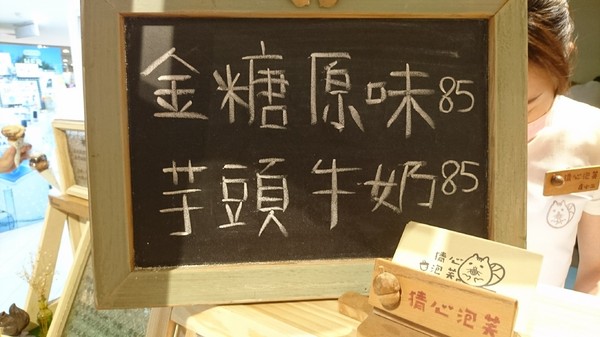 金糖原味85
芋頭牛奶85
猜心泡芙
猜心
泡芙
猜心泡芙